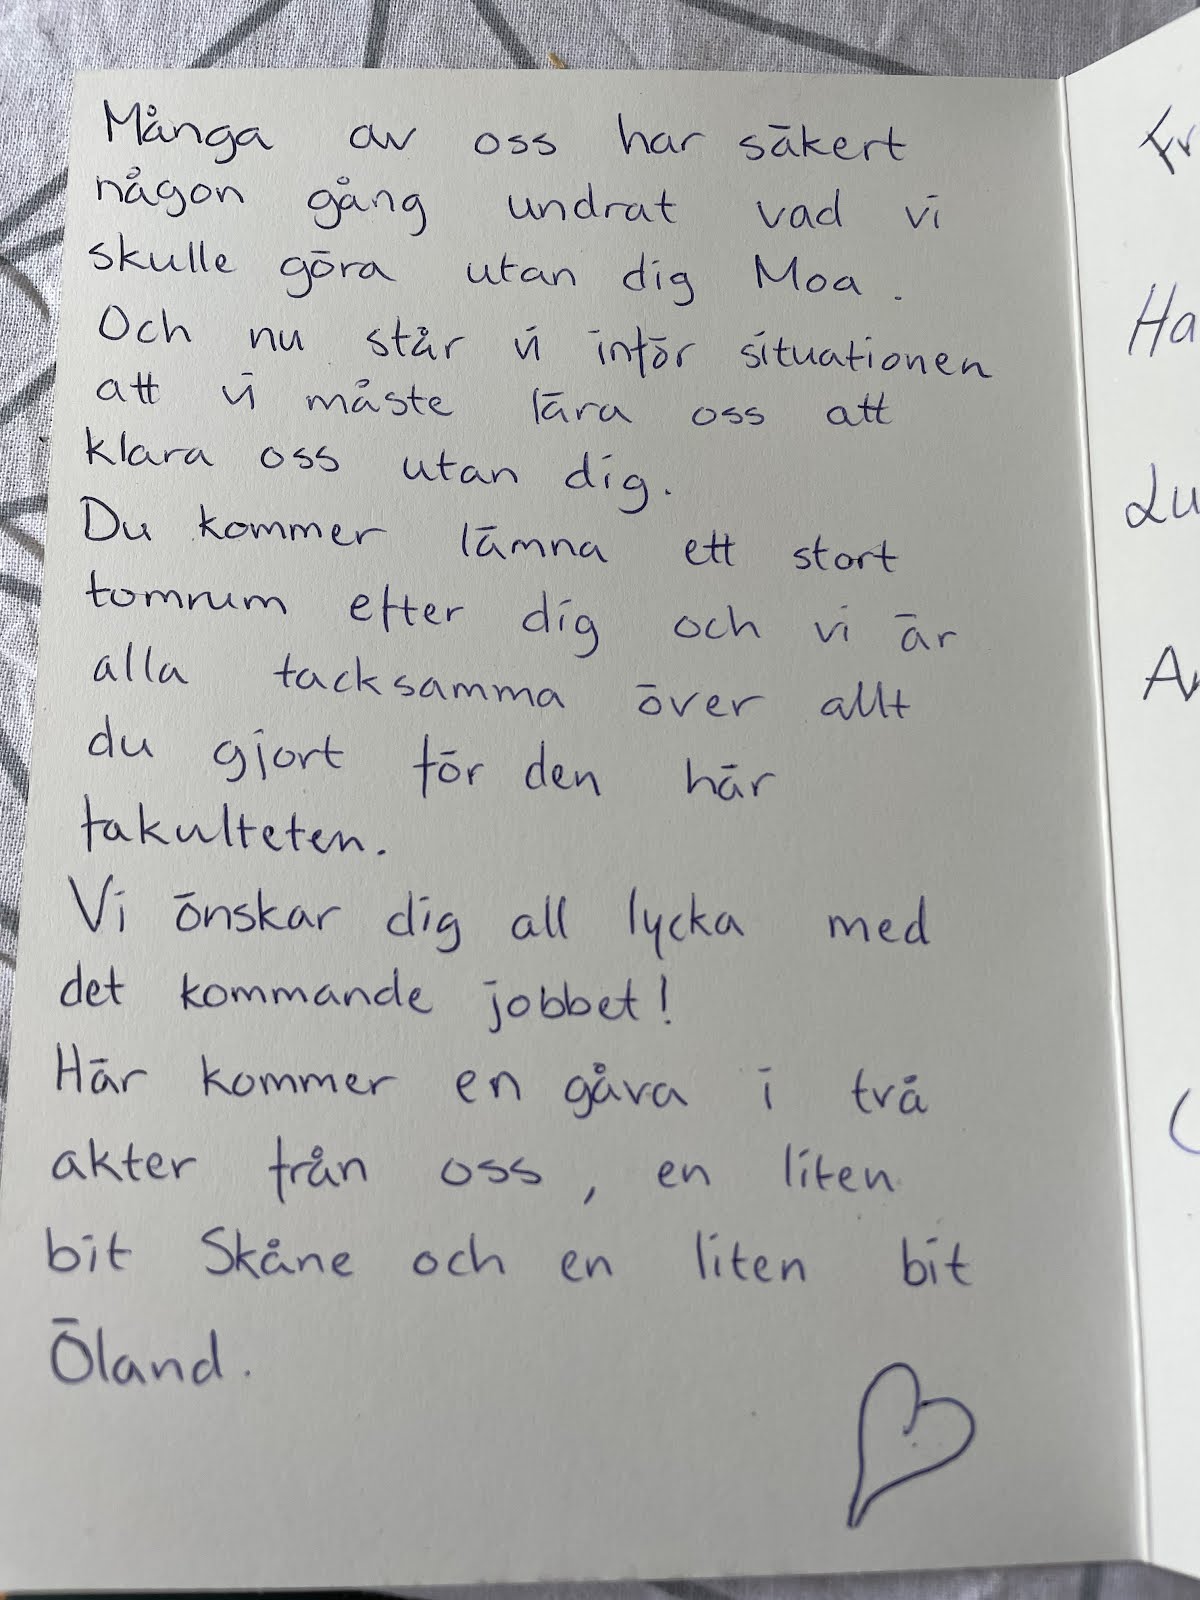 Många av oss har säkert
någon gång undrat vad vi
skulle göra utan dig Moa.
Och nu står vi inför situationen
att vi måste lära oss att
klara oss utan dig.
Du kommer lämna ett stort
tomrum efter dig och vi är
alla tacksamma över allt
du gjort för den här
fakulteten.
Vi önskar dig all lycka med
det kommande jobbet!
Här kommer en gåva i två
akter från oss, en liten
bit Skåne och en liten bit
Öland.
Fr
Ha
Lu